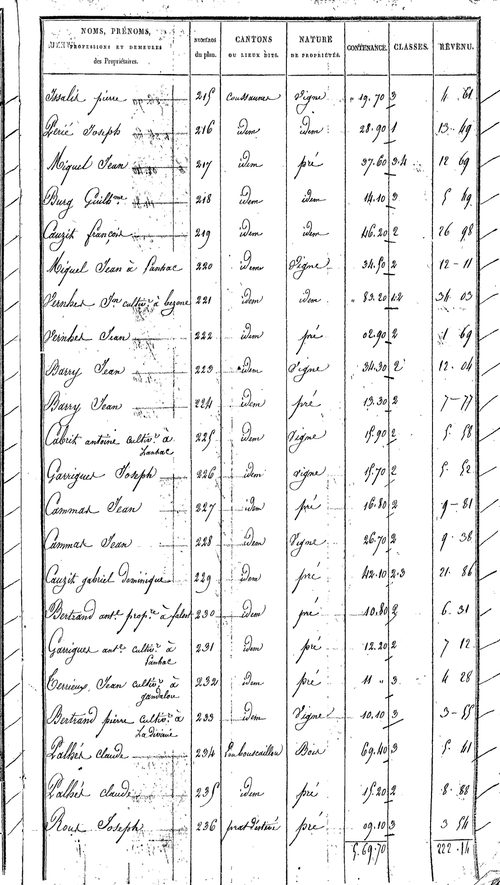 NOMS, PRÉNOMS, PROFESSIONS ET DEMEURES des Propriétaires. NUMÉROS du plan. CANTONS OU LIEUX DITS. NATURE DE PROPRIÉTÉS. CONTENANCE. CLASSES. REVENU.
Issalis pierre 215 Vigne 19.70 3 4 61
Périé Joseph 216 idem idem 28.90 1 13 49
Miquel Jean 217 idem pré 37.60 3.4 12 69
Burg Guilhme 218 idem idem 14.10 3 5 49
Cauzit françois 219 idem idem 46.20 2 26 98
Miquel Jean à Sanhac 220 idem Vigne 34.50 2 12 - 11
Vernhes Jn cultivr à 221 idem idem 83.20 1.2 34 03
Vernhes Jean 222 idem pré 02.90 2 1 69
Barry Jean 223 idem Vigne 34.30 2 12 04
Barry Jean 224 idem pré 13.30 2 7 - 77
Cabrit antoine cultivr à Sanhac 225 idem Vigne 15.90 2 5 58
Garrigues Joseph 226 idem vigne 15.70 2 5 52
Cammas Jean 227 idem pré 16.80 2 9 - 81
Cammas Jean 228 idem Vigne 26.70 2 9 38
Cauzit gabriel dominique 229 idem pré 42.10 2-3 21 86
Bertrand antne propre à 230 idem pré 10.80 2 6 31
Garrigues antne cultivr à Sanhac 231 idem pré 12.20 2 7 12
Terrieux Jean cultivr à gandalou 232 idem pré 11 " 3 4 28
Bertrand pierre cultivr à Ladivinie 233 idem Vigne 10.10 3 3 - 55
Palhés claude 234 Bois 69.40 3 5 41
Palhés claude 235 idem pré 15.20 2 8 88
Roux Joseph 236 pré 09.10 3 3 54
5.69.70 222.14